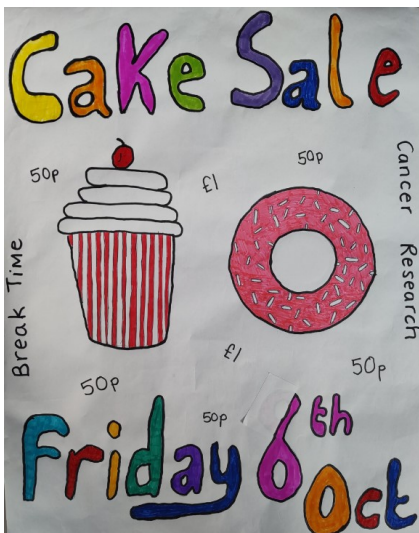 Cake Sale
50p
£1
50p
Cancer Research
Break Time
£1
50p
50p
50p
Friday 6th
Oct